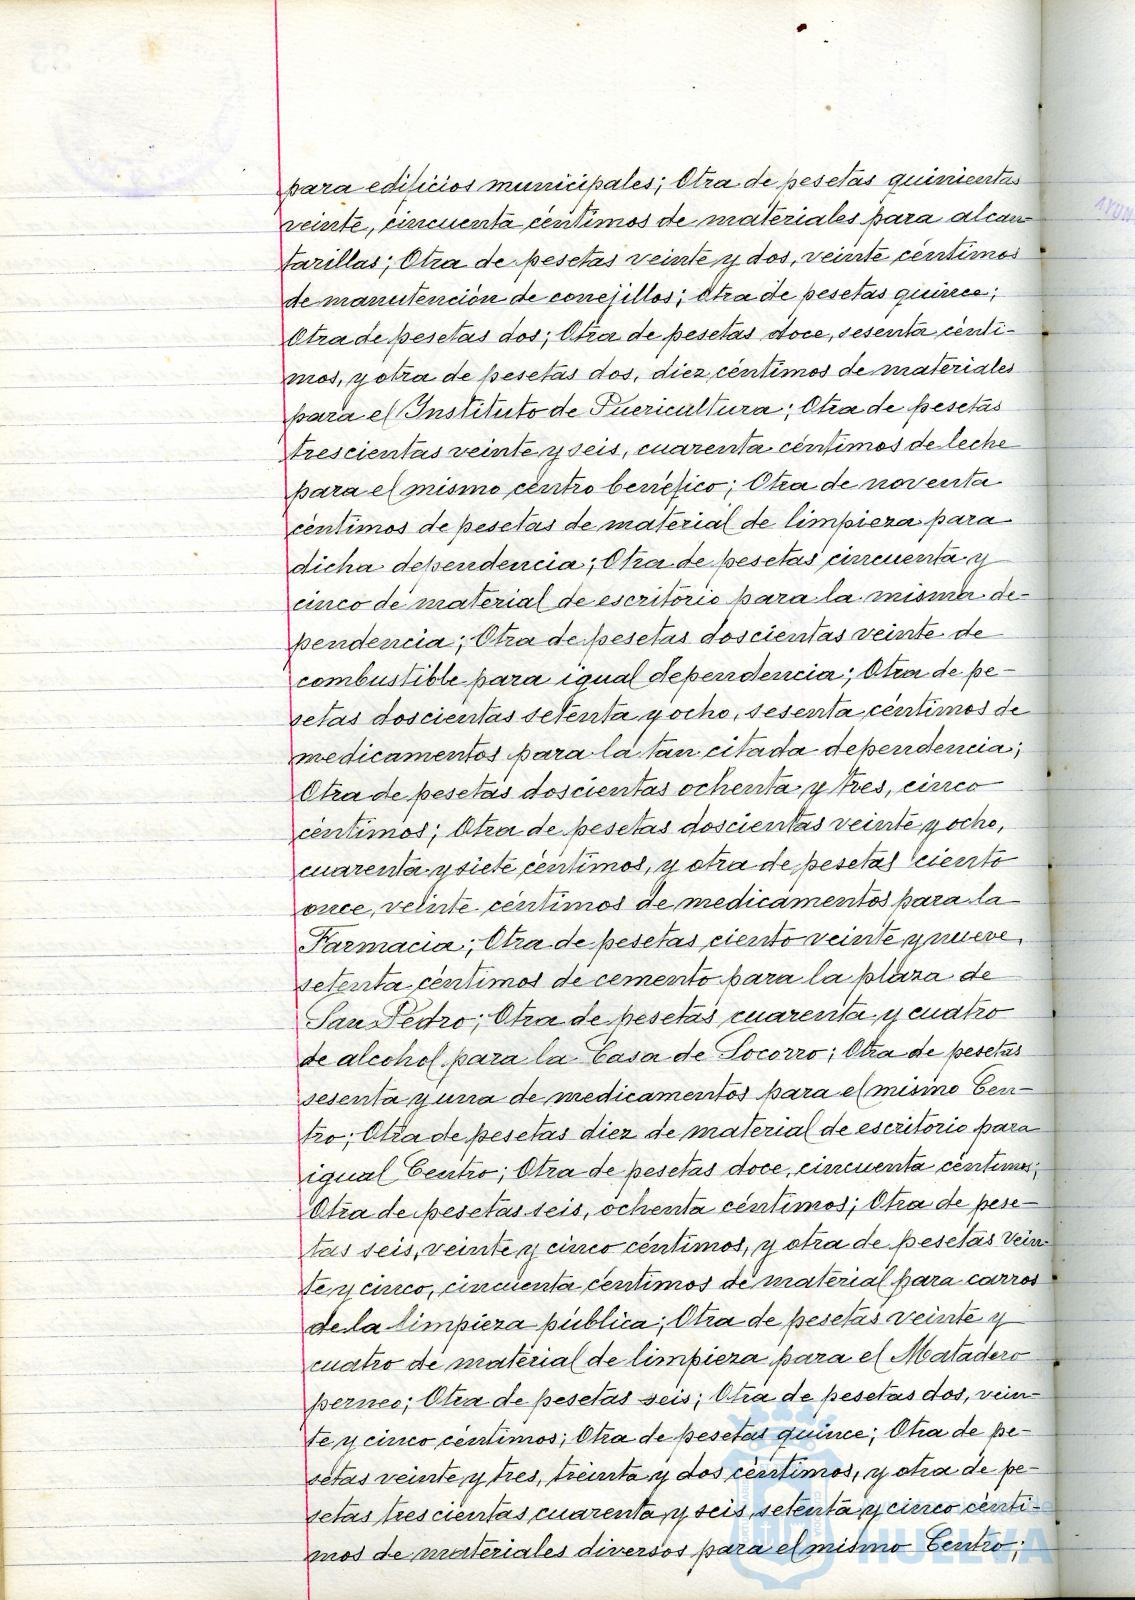 para edificios municipales; Otra de pesetas quinientas
veinte, cincuenta céntimos de materiales para alcan-
tarillas; Otra de pesetas veinte y dos, veinte céntimos
de manutención de conejillos; otra de pesetas quince;
Otra de pesetas dos; Otra de pesetas doce, sesenta cénti-
mos, y otra de pesetas dos, diez céntimos de materiales
para el Instituto de Puericultura; Otra de pesetas
trescientas veinte y seis, cuarenta céntimos de leche
para el mismo centro benéfico; Otra de noventa
céntimos de pesetas de material de limpieza para
dicha dependencia; Otra de pesetas cincuenta y
cinco de material de escritorio para la misma de-
pendencia; Otra de pesetas doscientas veinte de
combustible para igual dependencia; Otra de pe-
setas doscientas setenta y ocho, sesenta céntimos de
medicamentos para la tan citada dependencia;
Otra de pesetas doscientas ochenta y tres, cinco
céntimos; Otra de pesetas doscientas veinte y ocho,
cuarenta y siete céntimos, y otra de pesetas ciento
once, veinte céntimos de medicamentos para la
Farmacia; Otra de pesetas ciento veinte y nueve,
setenta céntimos de cemento para la plaza de
San Pedro; Otra de pesetas cuarenta y cuatro
de alcohol para la Casa de Socorro; Otra de pesetas
sesenta y una de medicamentos para el mismo Cen-
tro; Otra de pesetas diez de material de escritorio para
igual Centro; Otra de pesetas doce, cincuenta céntimos;
Otra de pesetas seis, ochenta céntimos; Otra de pese-
tas seis, veinte y cinco céntimos, y otra de pesetas vein-
te y cinco, cincuenta céntimos de material para carros
de la limpieza pública; Otra de pesetas veinte y
cuatro de material de limpieza para el Matadero
perneo; Otra de pesetas seis; Otra de pesetas dos, vein-
te y cinco céntimos; Otra de pesetas quince; Otra de pe-
setas veinte y tres, treinta y dos céntimos, y otra de pe-
setas trescientas cuarenta y seis, setenta y cinco cénti-
mos de materiales diversos para el mismo Centro;
HUELVA